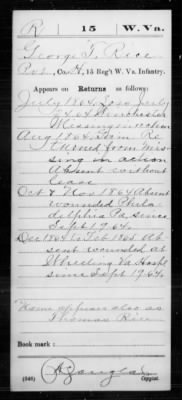 R | 15 | W. Va.
George T. Rice
Pvt., Co. H, 15 Reg't W. Va. Infantry.
Appears on Returns as follows:
July 1864 Loss July
24 64 Winchester
Missing in action
Aug 1864 Gain Re
turned from mis
sing in action
Absent without
leave
Oct & Nov 1864 Absent
wounded Phila-
delphia Pa since
Sept 19 64
Dec 1864 to Feb 1865 Ab
sent wounded at
Wheeling Va Hospt
since Sept 19 64
Name appears also as
Thomas Rice
Book mark:
(546) Copyist.